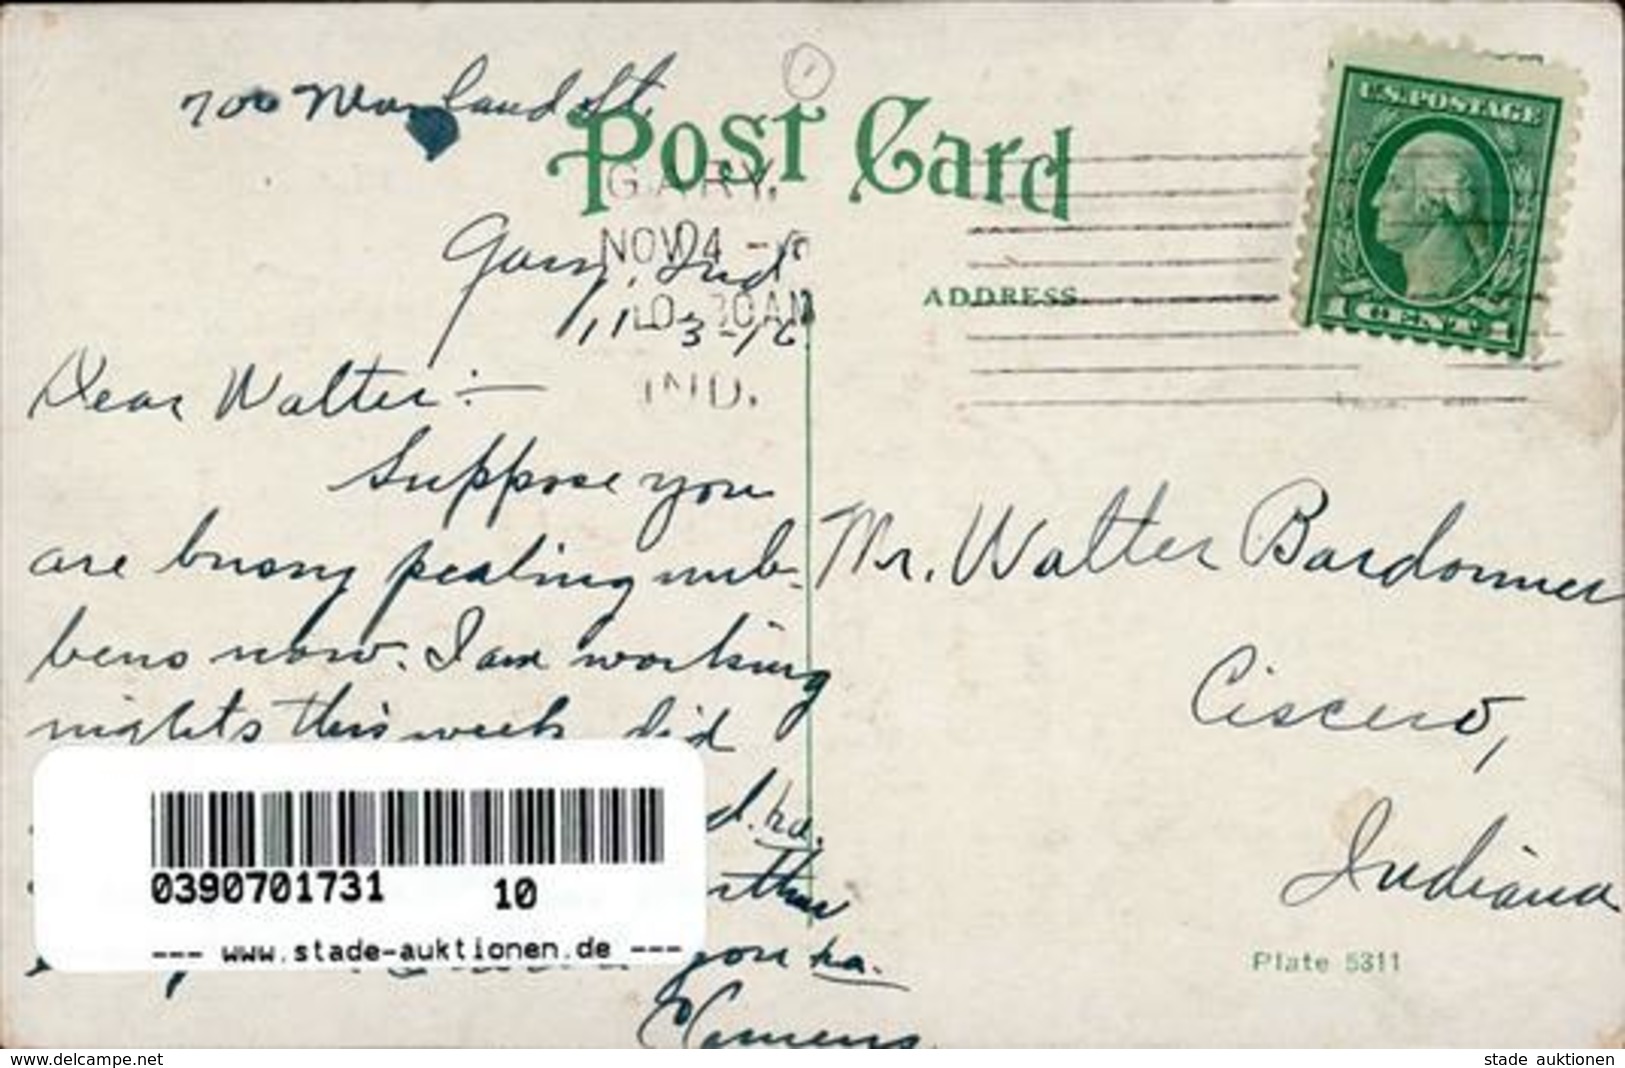 700 Maryland St.
Post Card
GARY,
NOV 4
Gary, Ind
10 30 AM
11-3-16
IND.
U.S. POSTAGE
1 CENT 1
ADDRESS
Dear Walter:—
Suppose you
are busy pealing nub-
bens now. I am working
nights this week did
d. ha.
you ha.
Clamens.
Mr. Walter Bardonner
Cicero,
Indiana
Plate 5311
0390701731 10
--- www.stade-auktionen.de ---
www.delcampe.net
stade auktionen